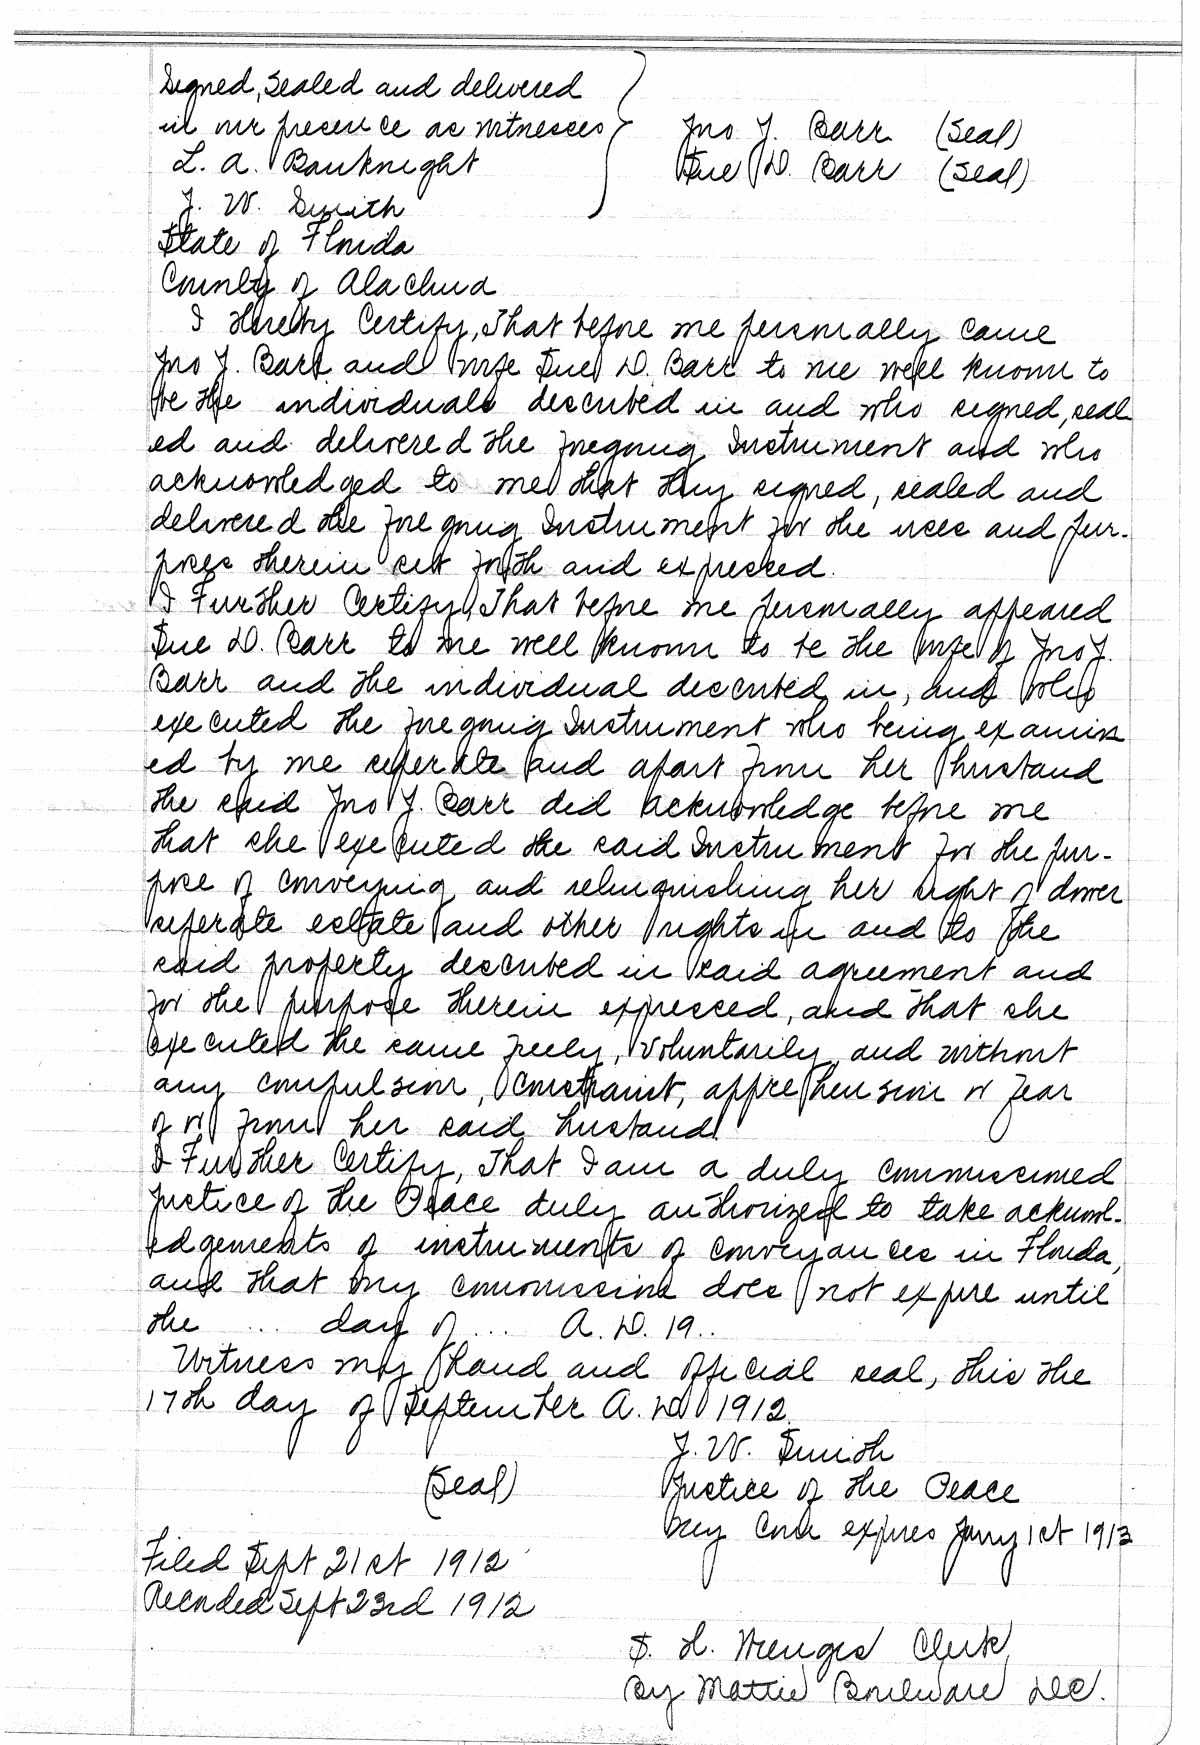 Signed, Sealed and delivered
in our presence as witnesses
Jno J. Barr (Seal)
L. A. Bauknight
Sue D. Barr (Seal)
J. W. Smith
State of Florida
County of Alachua
I Hereby Certify, That before me personally came
Jno J. Barr and wife Sue D. Barr to me well known to
be the individuals described in and who signed, seal
ed and delivered the foregoing Instrument and who
acknowledged to me that they signed, sealed and
delivered the foregoing Instrument for the uses and pur-
poses therein set forth and expressed.
I Further Certify, That before me personally appeared
Sue D. Barr to me well known to be the wife of Jno J.
Barr and the individual described in, and who
executed the foregoing Instrument who being examin
ed by me seperate and apart from her husband
the said Jno J. Barr did acknowledge before me
that she executed the said Instrument for the pur-
pose of conveying and relinquishing her right of dower
seperate estate and other rights in and to the
said property described in said agreement and
for the purpose therein expressed, and that she
executed the same freely, voluntarily and without
any compulsion, constraint, apprehension or fear
of or from her said husband.
I Further Certify, That I am a duly commissioned
Justice of the Peace duly authorized to take acknowl-
edgements of instruments of conveyances in Florida,
and that my commission does not expire until
the ... day of ... A. D. 19..
Witness my hand and official seal, this the
17th day of September A. D. 1912.
J. W. Smith
(Seal) Justice of the Peace
My Com expires Jany 1st 1913
Filed Sept 21st 1912
Recorded Sept 23rd 1912
S. H. Wienges Clerk
By Mattie Boulware D.C.